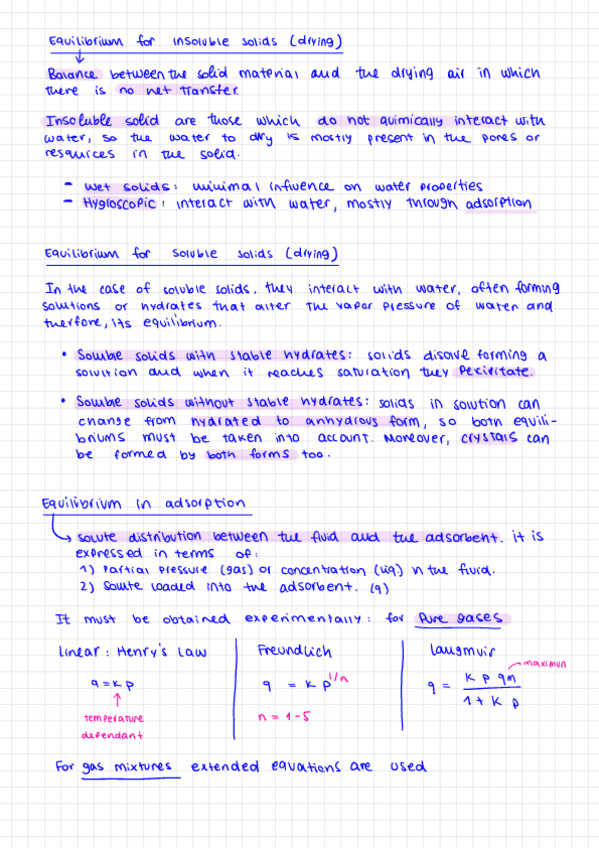 Equilibrium for insoluble solids (drying)
Balance between the solid material and the drying air in which
there is no net transfer.
Insoluble solid are those which do not quimically interact with
water, so the water to dry is mostly present in the pores or
resquices in the solid.
- Wet solids: minimal influence on water properties
- Hygroscopic: interact with water, mostly through adsorption
Equilibrium for soluble solids (drying)
In the case of soluble solids, they interact with water, often forming
solutions or hydrates that alter the vapor pressure of water and
therfore, its equilibrium.
• Soluble solids with stable hydrates: solids disolve forming a
solution and when it reaches saturation they pecipitate.
• Soluble solids without stable hydrates: solids in solution can
change from hydrated to anhydrous form, so both equili-
briums must be taken into account. Moreover, crystals can
be formed by both forms too.
Equilibrium in adsorption
solute distribution between the fluid and the adsorbent. it is
expressed in terms of:
1) Partial pressure (gas) or concentration (liq) in the fluid.
2) Solute loaded into the adsorbent. (q)
It must be obtained experimentally: for pure gases
linear: Henry's Law
q = K p
temperature
dependant
Freundlich
q = K p^1/n
n = 1-5
Langmuir
maximun
q = K p qm / 1 + K p
For gas mixtures extended equations are used